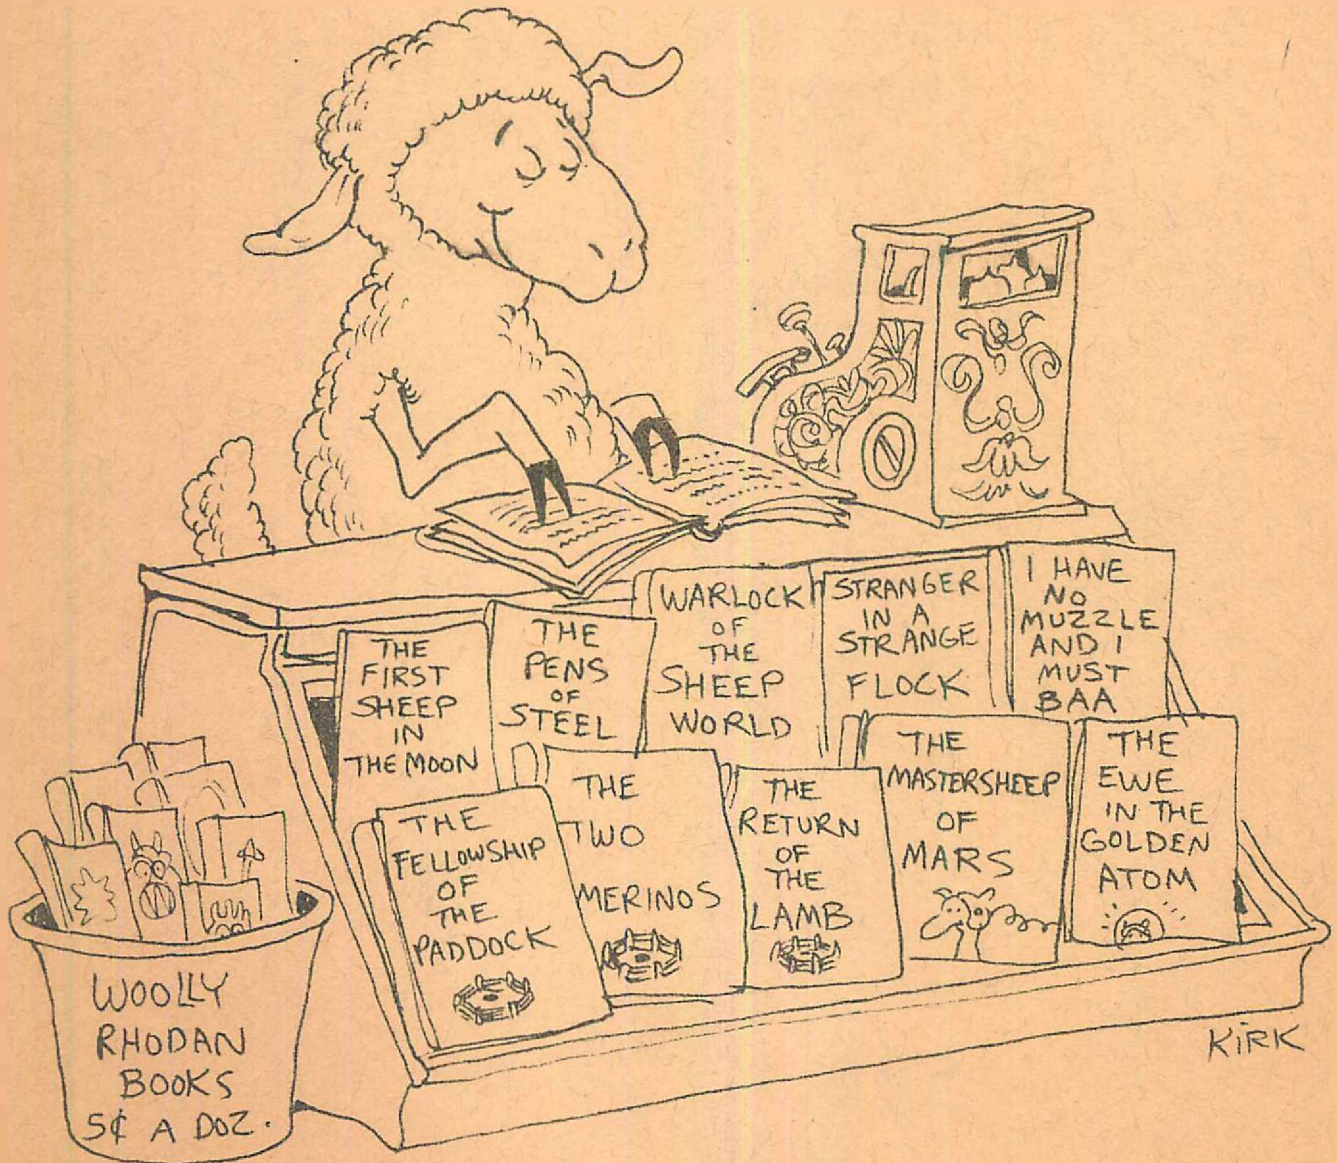 THE
FIRST
SHEEP
IN
THE MOON
THE
PENS
OF
STEEL
WARLOCK
OF
THE
SHEEP
WORLD
STRANGER
IN A
STRANGE
FLOCK
I HAVE
NO
MUZZLE
AND I
MUST
BAA
THE
FELLOWSHIP
OF
THE
PADDOCK
THE
TWO
MERINOS
THE
RETURN
OF
THE
LAMB
THE
MASTERSHEEP
OF
MARS
THE
EWE
IN THE
GOLDEN
ATOM
WOOLLY
RHODAN
BOOKS
5¢ A DOZ.
KIRK